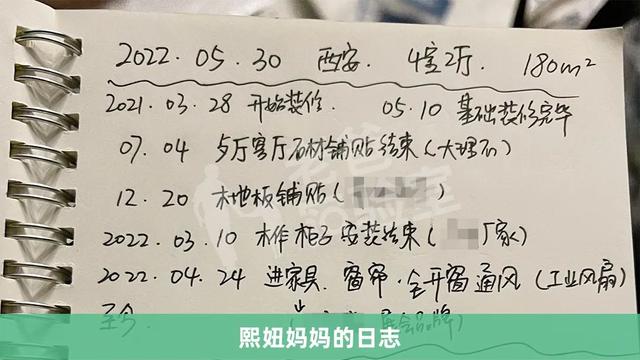 2022.05.30 西安. 4室2厅. 180m²
2021.03.28 开始装修 05.10 基础装修完毕
07.04 客厅石材铺贴结束(大理石)
12.20 木地板铺贴(
2022.03.10 木作柜子安装结束( 厂家)
2022.04.24 进家具.窗帘.全开窗通风(工业风扇)
至今.
熙妞妈妈的日志